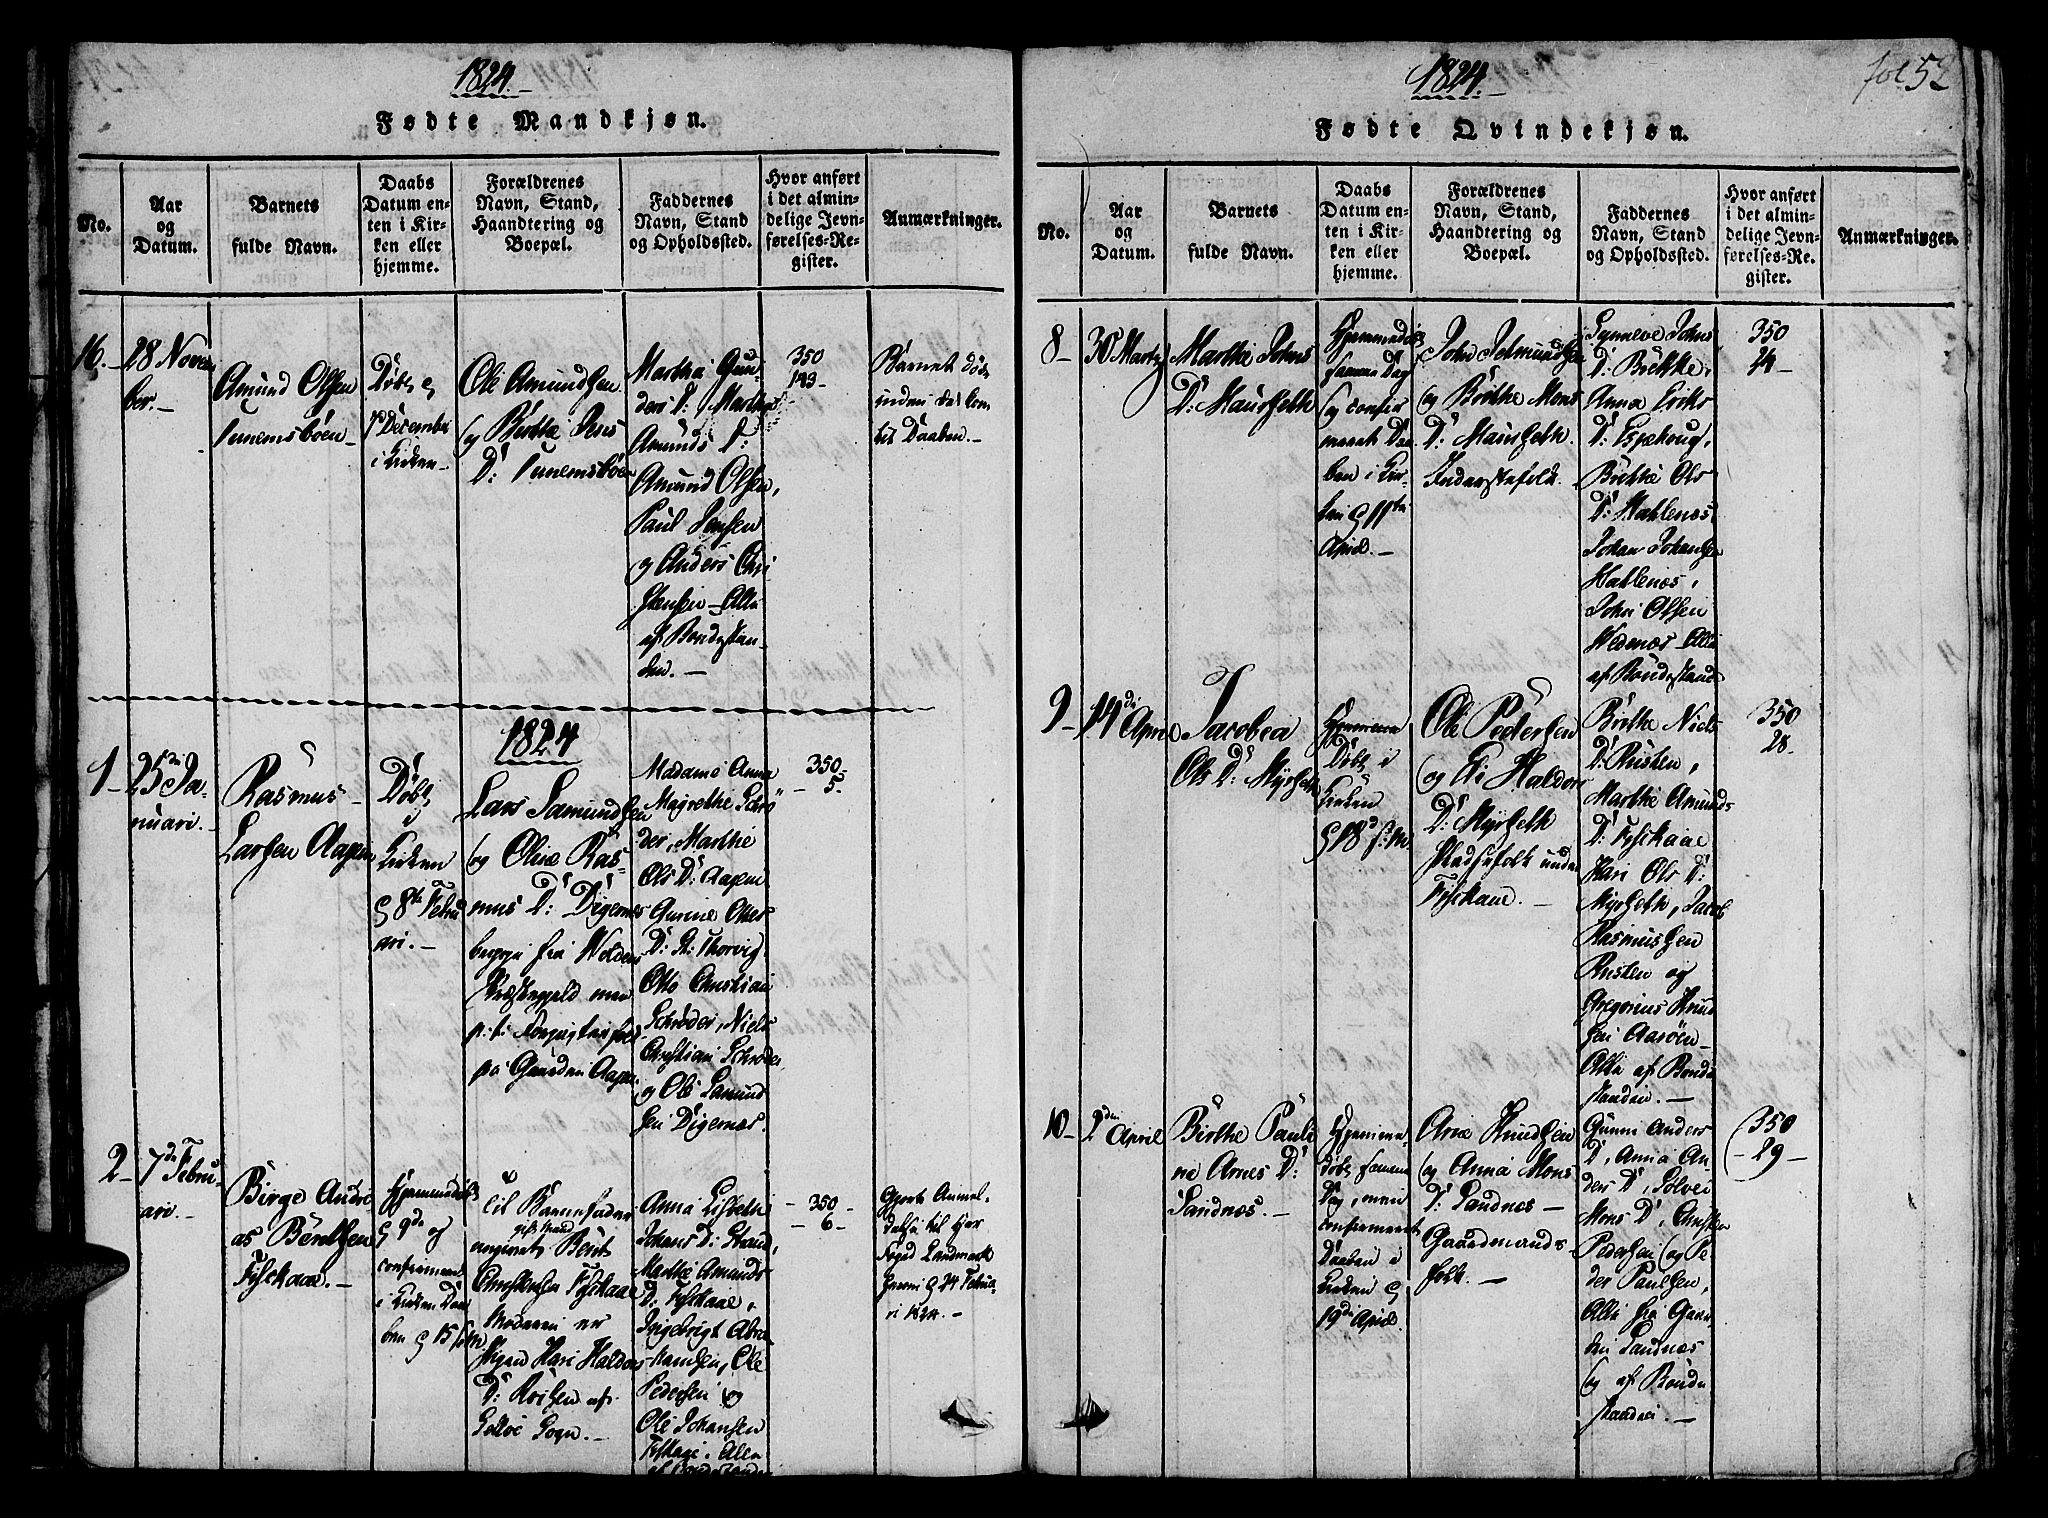 1824.
Fødte Mandkjøn.
No.
Aar
og
Datum.
Barnets
fulde Navn.
Daabs
Datum en-
ten i Kir-
ken eller
hjemme.
Forældrenes
Navn, Stand,
Haandtering og
Boepæl.
Faddernes
Navn, Stand
og Opholdssted.
Hvor anført
i det almin-
delige Jevn-
førelses-Re-
gister.
Anmærkninger.
16.
28 Novem
ber.
Amund Olsen
Tunemsbøen
Døbt
7 December
i Kirken
Ole Amundsen
og Birthe Jens
D: Tunemsbøen
Marthe Gun
ders D: Marthe
Amunds D:
Amund Olsen,
Paul Jensen
og Anders Chri
stensen Alle
af Bondestan-
den.
350
143
Barnet døde
inden det kom
til Daaben.
1824
1
25de Ja-
nuari.
Rasmus
Larsen Aagen
Døbt
i
Kirken
8de Febru
ari.
Lars Samundsen
og Oline Ras-
mus D: Digernes
begge fra Wolden
Præstegjeld men
p: t:
paa Gaarden Aagen
Madame Anna
Magrethe Schrö
der, Marthe
Ols D: Aagen
Gurine Otters
D: St: Thorvig
Otto Christian
Schröder, Niels
Christian Schröder
og Ole Samund
sen Digernes.
350
5.
2
7de Febru-
ari.
Birge Andre
as Berntsen
Fiskaae.
Hjemmedøbt
9de og
confirmeret
i Kirken Daa
ben 15 s: M:
til Barnefader
angivet Bernt
Christensen Fiskaae
Moderen er
Pigen Kari Haldors
D: Roisen af
Godøe Sogn.
Anna Lisbeth
Johans D: Strand,
Marthe Amunds
D: Fiskaae,
Ingebrigt Abra
hamsen, Ole
Pedersen og
Ole Johansen
Alle
af Bondestanden
350
6
Gjort Anmel-
delse til Hr
Foged Landmark
herom 24 Februa
ri 1824.
1824.
fol 52
Fødte Qvindekjøn.
No.
Aar
og
Datum.
Barnets
fulde Navn.
Daabs
Datum en-
ten i Kir-
ken eller
hjemme.
Forældrenes
Navn, Stand,
Haandtering og
Boepæl.
Faddernes
Navn, Stand
og Opholdssted.
Hvor anført
i det almin-
delige Jevn-
førelses-Re-
gister.
Anmærkninger.
8
30 Martz
Marthe Johns
D: Maursæth
Hjemmedøbt
samme Dag
og confir
meret Daa
ben i Kir-
ken 11te
April.
John Jetmundsen
og Birthe Mons
D: Maursæth.
Inderstefolk.
Synneve Johns
D: Brekke,
Anna Eriks
D:
Birthe Ols
D: Hatlenæs
Johan Johansen
Hatlenæs,
John Olsen
Wedenæs Alle
af Bondestanden
350
24
9
14de April
Jacobea
Ols D: Myrseth
Hjemme
Døbt i
Kirken
18de s: M.
Ole Pedersen
og Eli Haldor
D: Myrseth
Pladsefolk under
Fiskaae.
Birthe Niels
D: Rusten,
Marthe Amunds
D: Fiskaae
Kari Ols D:
Myrseth, Jacob
Rasmussen
Rusten og
Gregorius Knud
sen Aarøen
Alle af Bonde
standen.
350
28.
10
2den April
Birthe Pauli
ne Arnes D:
Sandnæs.
Hjemme
døbt samme
Dag, men
confirmeret
Daaben i
Kirken
19de April.
Arne Knudsen
og Anna Mons
D: Sandnæs
Gaardmands-
folk.
Gunni Anders
D, Anna An-
ders D, Solvei
Mons D, Christen
Pedersen og Pe-
der Paulsen,
Alle fra Gaar
den Sandnæs
og af Bonde
standen.
350
29